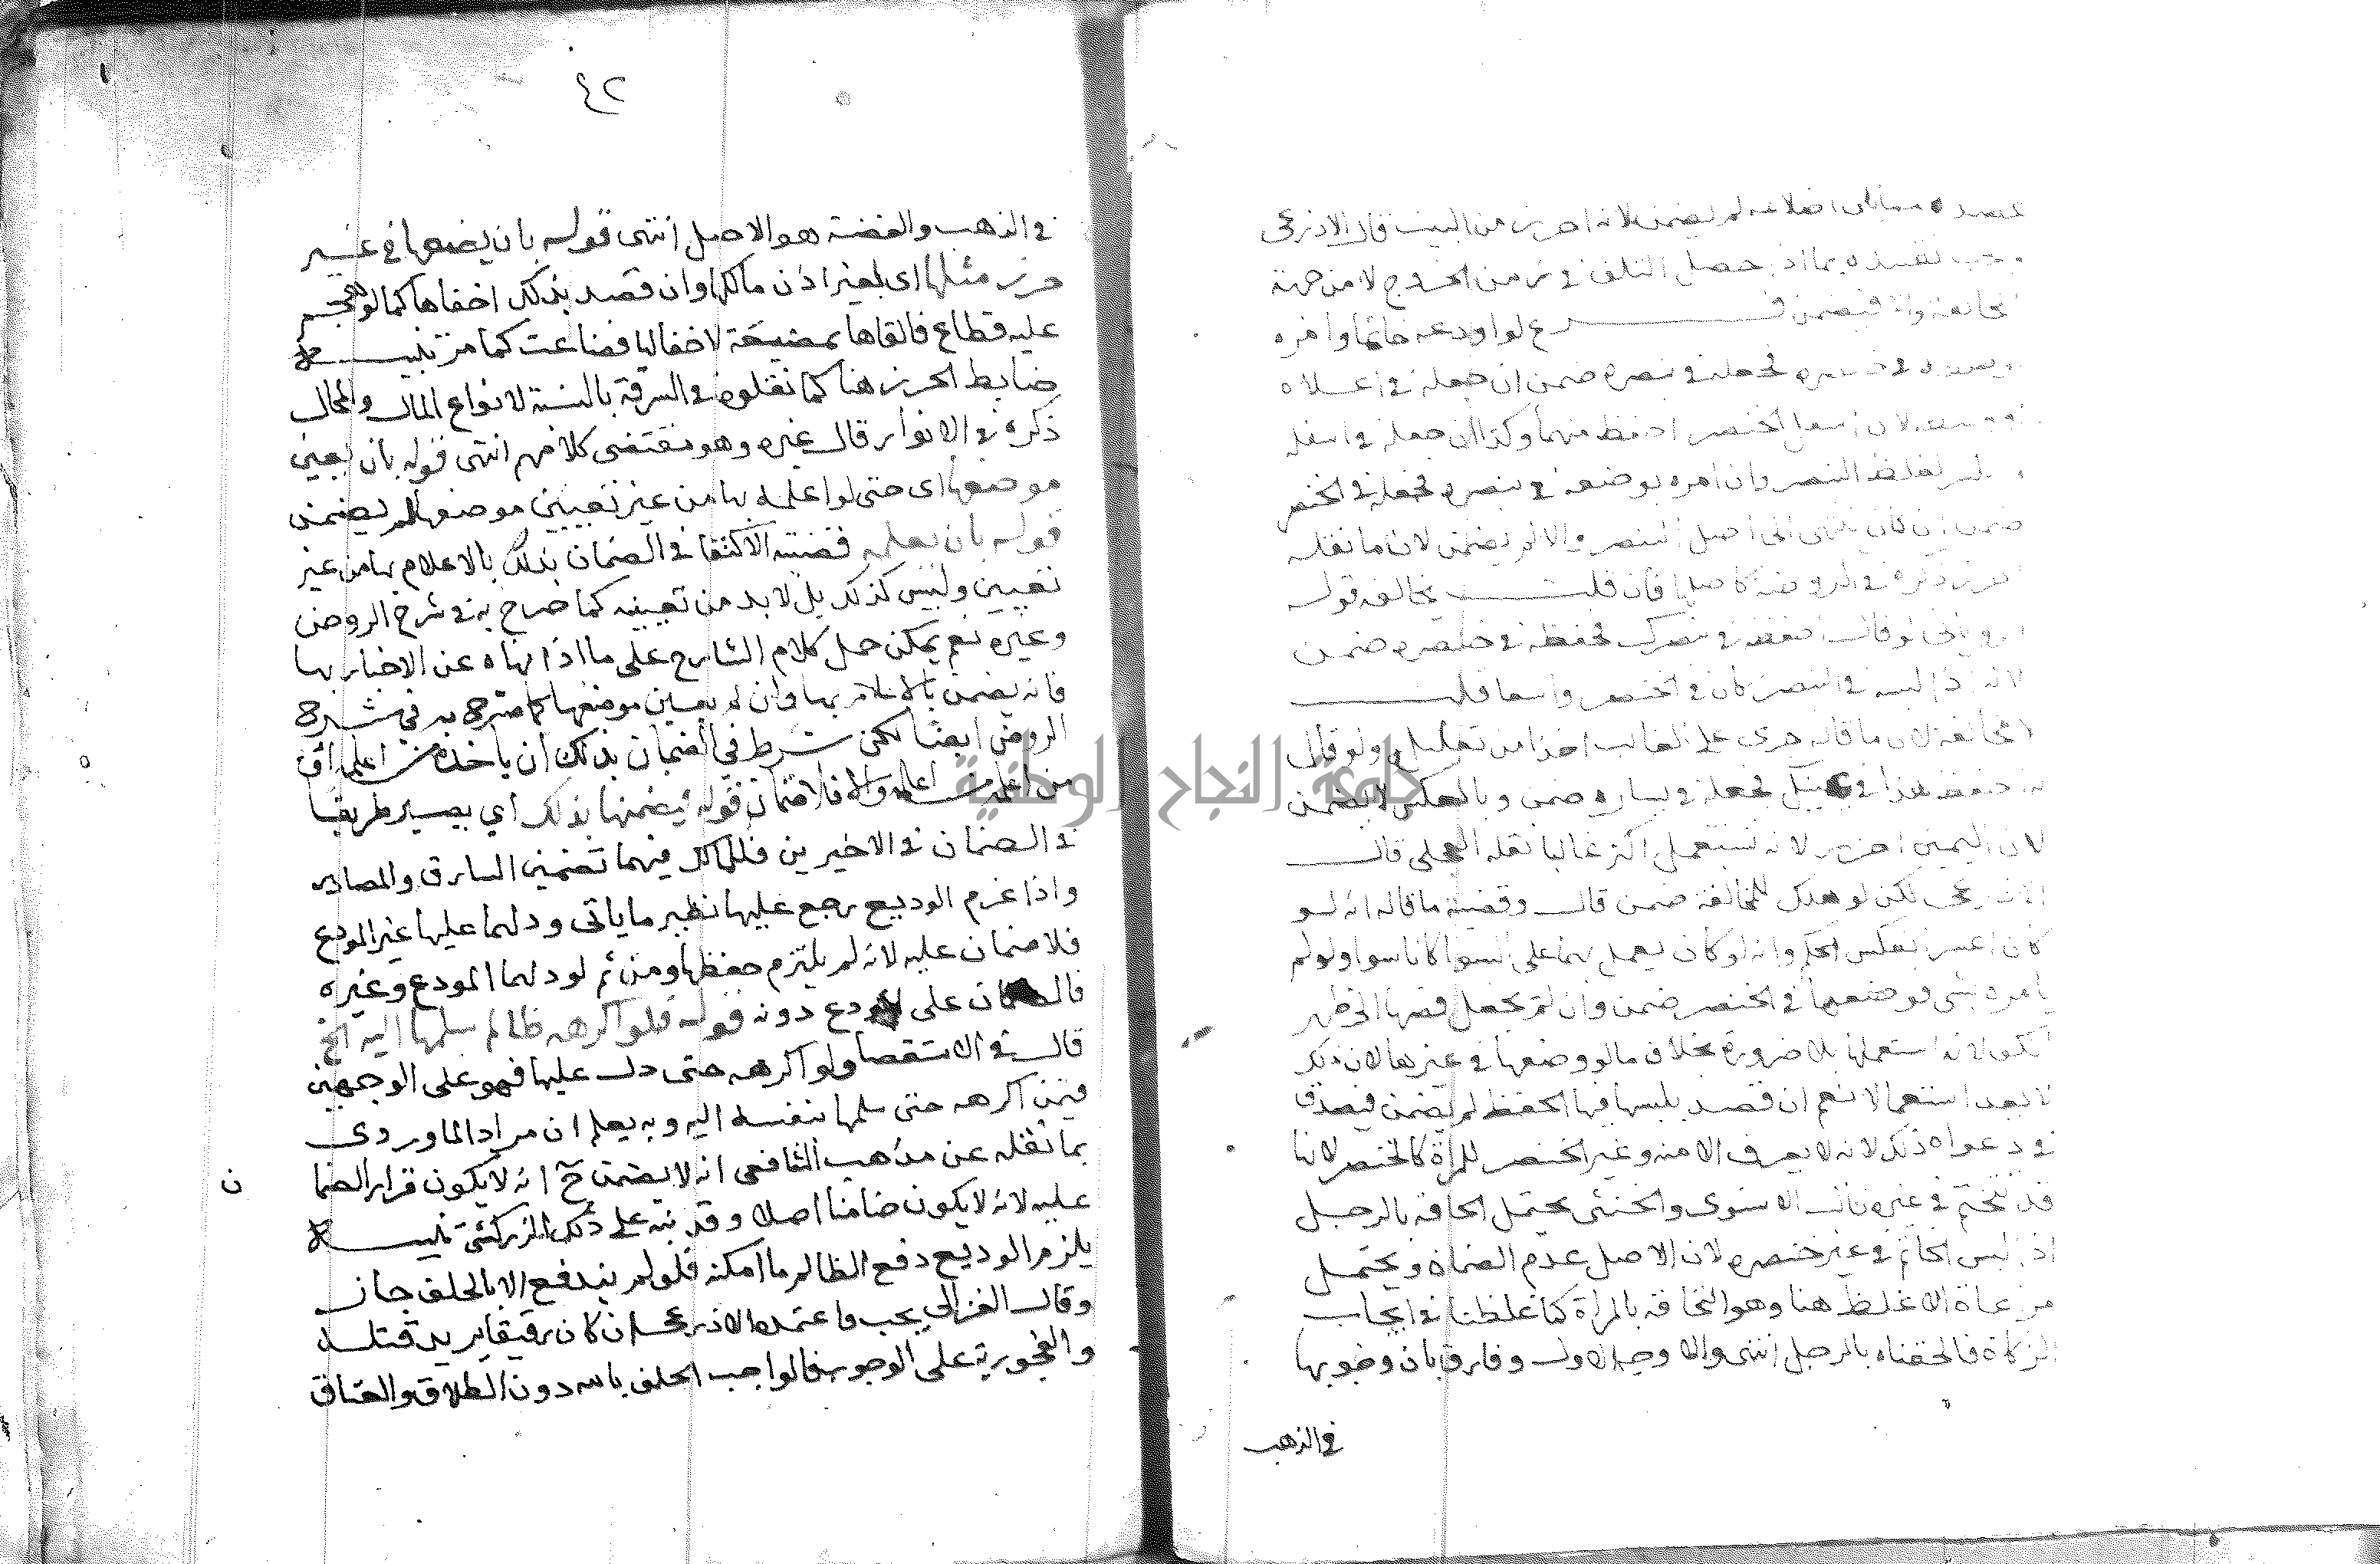 لم يضمن لانه احرز من البيت قال الاذرعى
تقييده بما اذا حصل التلف فى زمن الخروج لا من جهة
المخالفة والا فيضمن فــــرع لو اودعه خاتما وامره
فجعله فى بنصره ضمن ان جعله فى اعلاه
لان اسفل الخنصر احفظ منهما وكذا ان جعله فى اسفله
لغلظ البنصر وان امره بوضعه فى بنصره فجعله فى الخنصر
ضمن ان كان ينتهى الى اصل البنصر والا لم يضمن لان ما نقله
ذكره فى الروضة كاصلها فان قلت يخالفه قوله
لو قال احفظه فى بنصرك فحفظه فى خنصره ضمن
لانه اذا لبسه فى البنصر كان فى الخنصر واسعا قلت
لا مخالفة لان ما قاله جرى على الغالب اخذا من تعليله ولو قال
احفظ هذا فى يمينك فجعله فى يساره ضمن وبالعكس لا يضمن
لان اليمين احرز لانه تستعمل اكثر غالبا نقله العجلى قال
الاذرعى لكن لو هلك للمخالفة ضمن قال وقضية ما قاله انه لو
كان اعسر انعكس الحكم وانه لو كان يعمل بهما على السوا كانا سوا ولو لم
يامره بشى فوضعها فى الخنصر ضمن وان لم يجعل فصها الى ظهر
الكف لانه استعملها بلا ضرورة بخلاف ما لو وضعها فى غيرها لان ذلك
لا يعد استعمالا نعم ان قصد بلبسها فيها الحفظ لم يضمن فيصدق
فى دعواه ذلك لانه لا يعرف الا منه وغير الخنصر للمراة كالخنصر لانها
قد تتختم فى غيره قال الاسنوى والخنثى يحتمل الحاقه بالرجل
اذا لبس الخاتم فى غير خنصره لان الاصل عدم الضمان ويحتمل
مراعاة الاغلظ هنا وهو التحاقه بالمراة كما غلظنا فى ايجاب
الزكاة فالحقناه بالرجل انتهى والاوجه الاول وفارق بان وجوبها
فى الذهب
٤٢
فى الذهب والفضة هو الاصل انتهى قوله بان يضعها فى غير
حرز مثلها اى بغير اذن مالكها وان قصد بذلك اخفاها كما لو هجم
عليه قطاع فالقاها بمضيعة لاخفائها فضاعت كما مر تنبيــــه
ضابط الحرز هنا كما نقلوه فى السرقة بالنسبة لانواع المال والمحال
ذكره فى الانوار قال غيره وهو مقتضى كلامهم انتهى قوله بان يعين
موضعها اى حتى لو اعلمه بها من غير تعيين موضعها لم يضمن
قوله بان يعلمه قضيته الاكتفا فى الضمان بذلك بالاعلام بها من غير
تعيين وليس كذلك بل لا بد من تعيينه كما صرح به فى شرح الروض
وغيره نعم يمكن حمل كلام الشارح على ما اذا نهاه عن الاخبار بها
فانه يضمن بالاعلام بها وان لم يعين موضعها كما صرح به فى شرح
الروض ايضا لكن شرط فى الضمان بذلك ان ياخذه من اعلمه او
من اعلمه من اعلمه والا فلا ضمان قوله فيضمنها بذلك اي يصير طريقا
فى الضمان فى الاخيرين فللمالك فيهما تضمين السارق والمصادر
واذا غرم الوديع رجع عليها نظير ما ياتى ودلهما عليها غير المودع
فلا ضمان عليه لانه لم يلتزم حفظها ومن ثم لو دلهما المودع وغيره
فالضمان على المودع دونه قوله فلو اكرهه ظالم سلمها اليه الخ
قال فى الاستقصا ولو اكرهه حتى دل عليها فهو على الوجهين
فيمن اكرهه حتى سلمها بنفسه اليه وبه يعلم ان مراد الماوردى
بما نقله عن مذهب الشافعى انه لا يضمن ح انه لا يكون قرار الضما
ن
عليه لانه لا يكون ضامنا اصلا وقد نبه على ذلك الزركشى تنبيــــه
يلزم الوديع دفع الظالم ما امكنه فلو لم يندفع الا بالحلف جاز
وقال الغزالى يجب واعتمده الاذرعى ان كان رقيقا يريد قتله
والفجور به على الوجوب فالواجب الحلف بالله دون الطلاق والعتاق
جامعة النجاح الوطنية